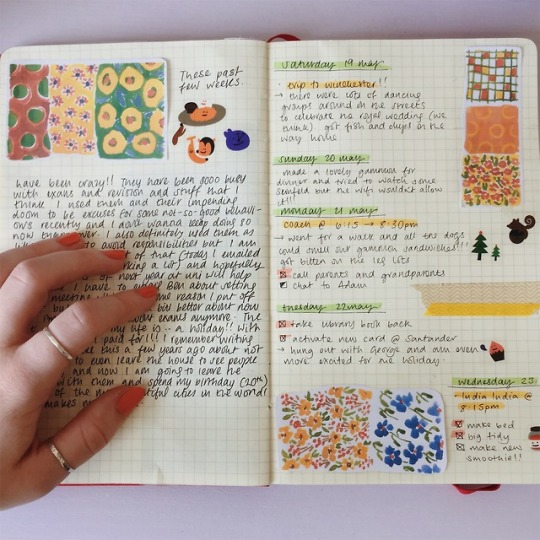 These past
few weeks.
have been crazy!! They have been sooo busy
with exams and revision and stuff that I
think I used them and their impending
doom to be excuses for some not-so-good behavi-
ours recently and I don't wanna keep doing so
now they're over. I also definitely used them as
to avoid responsibilities but I am
of that (today I emailed
working a lot) and hopefully
of next year at uni will help
I have to email Ben about getting
some reason I put off
bit better about now
about exams anymore. The
my life is - a holiday!! With
paid for!!! I remember writing
this a few years ago about not
to even leave the house to see people
and now I am going to leave the
with them and spend my birthday (20th)
of the most beautiful cities in the world!
makes
saturday 19 may
· trip to winchester!!
→ there were lots of dancing
groups around in the streets
to celebrate the royal wedding (we
think). got fish and chips on the
way home
sunday 20 may
made a lovely gammon for
dinner and tried to watch some
seinfeld but the wifi wouldn't allow
it!!
monday 21 may
coach @ 6:15 → 8:30pm
→ went for a walk and all the dogs
could smell our gammon sandwiches!!
got bitten on the leg lots
call parents and grandparents
chat to Adam
tuesday 22 may
take library book back
activate new card @ Santander
→ hung out with George and am even
more excited for the holiday
wednesday 23
India India @
8:15pm
make bed
big tidy
make new
smoothie!!